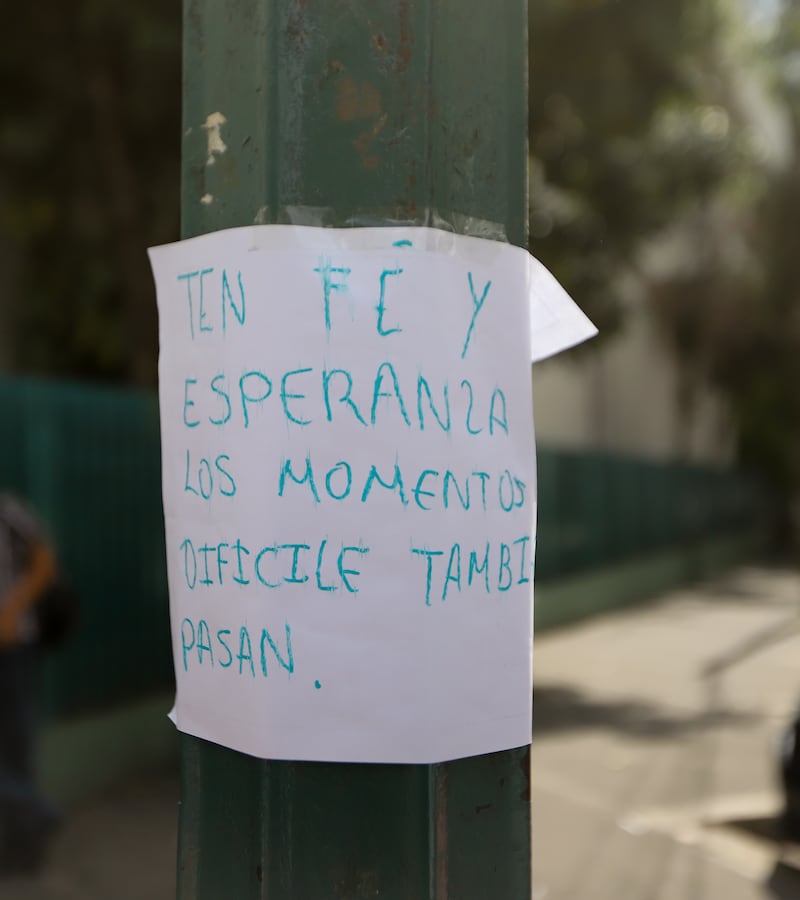 TEN FÉ Y
ESPERANZA
LOS MOMENTOS
DIFICILE TAMBI
PASAN.